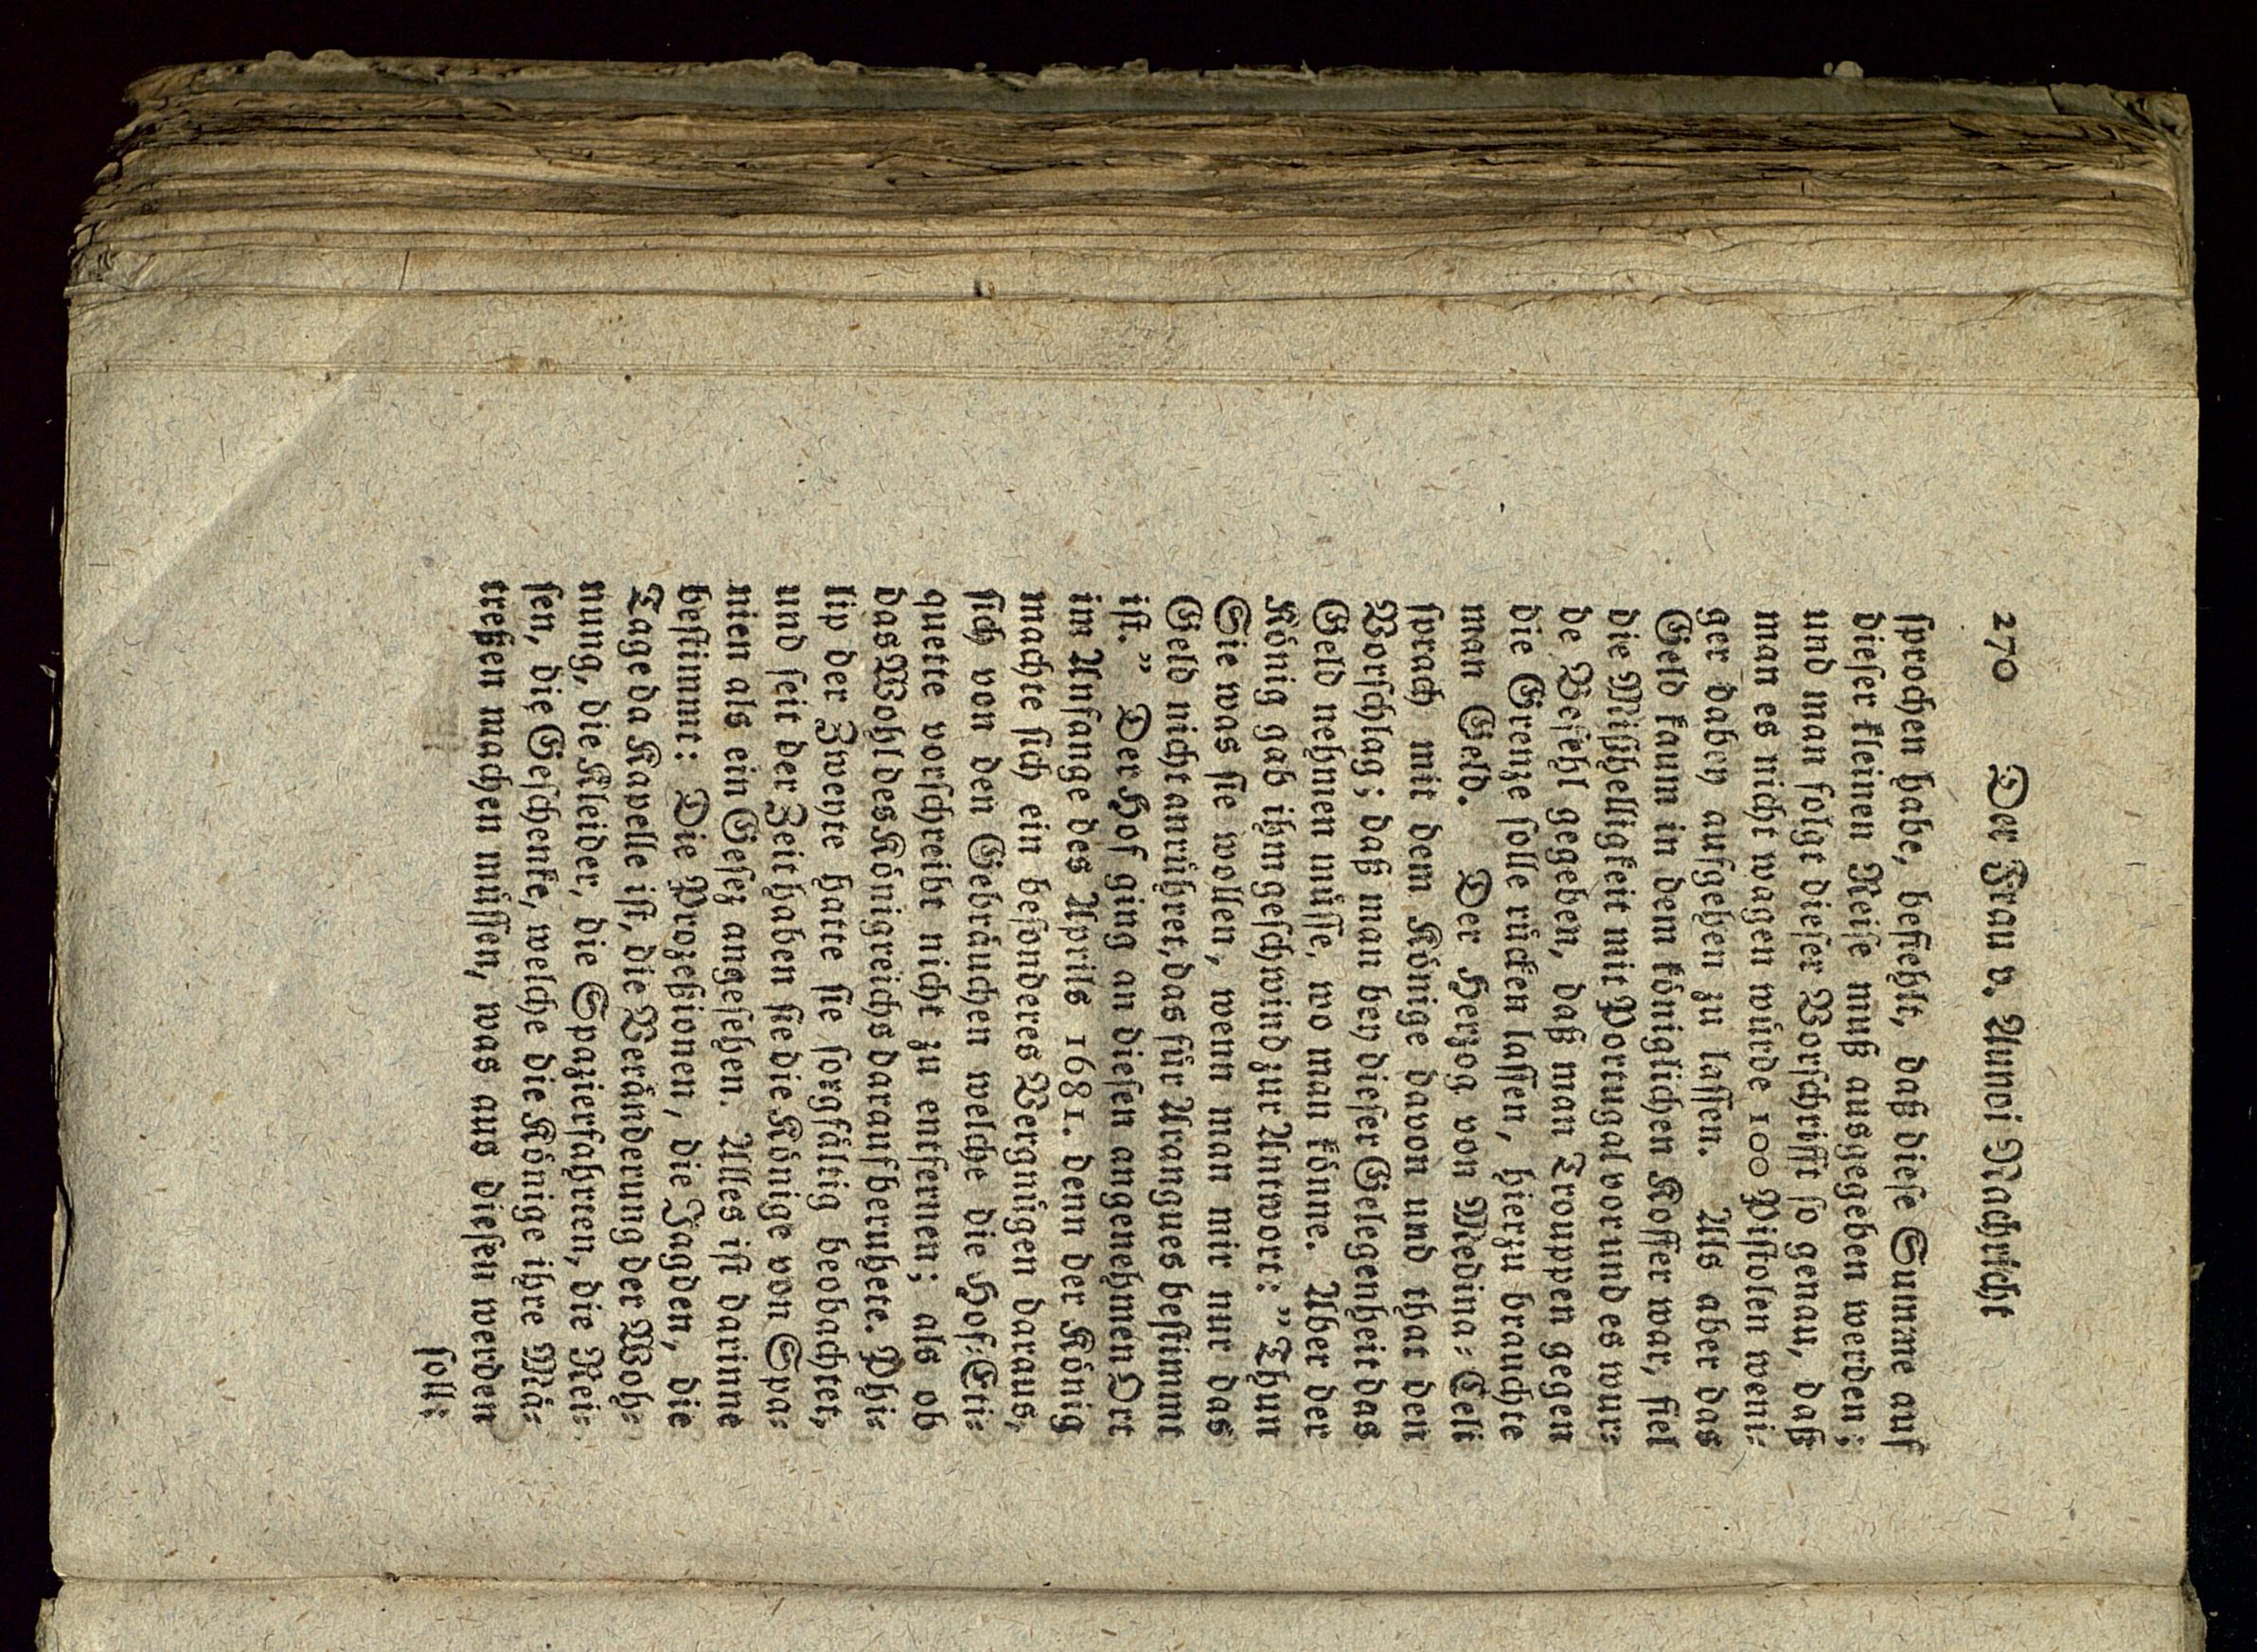 270 Der Frau v. Aunoi Nachricht
ſprochen habe, befiehlt, daß dieſe Summe auf
dieſer kleinen Reiſe muß ausgegeben werden;
und man folgt dieſer Vorſchrifft ſo genau, daß
man es nicht wagen würde 100 Piſtolen weni⸗
ger dabey aufgehen zu laſſen. Als aber das
Geld kaum in dem königlichen Koffer war, fiel
die Mißhelligkeit mit Portugal vor und es wur⸗
de Befehl gegeben, daß man Trouppen gegen
die Grenze ſolle rücken laſſen, hierzu brauchte
man Geld. Der Herzog von Medina⸗Celi
ſprach mit dem Könige davon und that den
Vorſchlag; daß man bey dieſer Gelegenheit das
Geld nehmen müſſe, wo man könne. Aber der
König gab ihm geſchwind zur Antwort: ” Thun
Sie was ſie wollen, wenn man mir nur das
Geld nicht anrühret, das für Arangues beſtimmt
iſt. ” Der Hof ging an dieſen angenehmen Ort
im Anfange des Aprils 1681. denn der König
machte ſich ein beſonderes Vergnügen daraus,
ſich von den Gebräuchen welche die Hof⸗Eti⸗
quette vorſchreibt nicht zu entfernen; als ob
das Wohl des Königreichs darauf beruhete. Phi⸗
lip der Zweyte hatte ſie ſorgfältig beobachtet,
und ſeit der Zeit haben ſie die Könige von Spa⸗
nien als ein Geſez angeſehen. Alles iſt darinne
beſtimmt: Die Prozeßionen, die Jagden, die
Tage da Kapelle iſt, die Veränderung der Woh⸗
nung, die Kleider, die Spazierfahrten, die Rei⸗
ſen, die Geſchenke, welche die Könige ihre Mä⸗
treßen machen müſſen, was aus dieſen werden
ſoll⸗